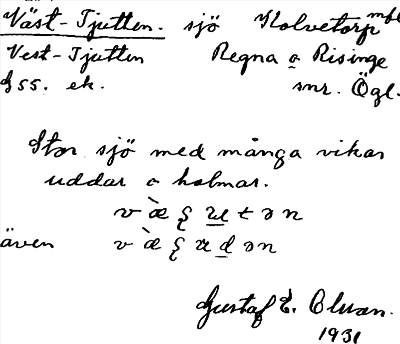 Väst-Tjutten. sjö Kolvetorp mfl
Vest-Tjutten Regna o Risinge
G55. ek. snr. Ögl.
Stor sjö med många vikar
uddar o holmar.
även
Gustaf E. Olsson.
1931